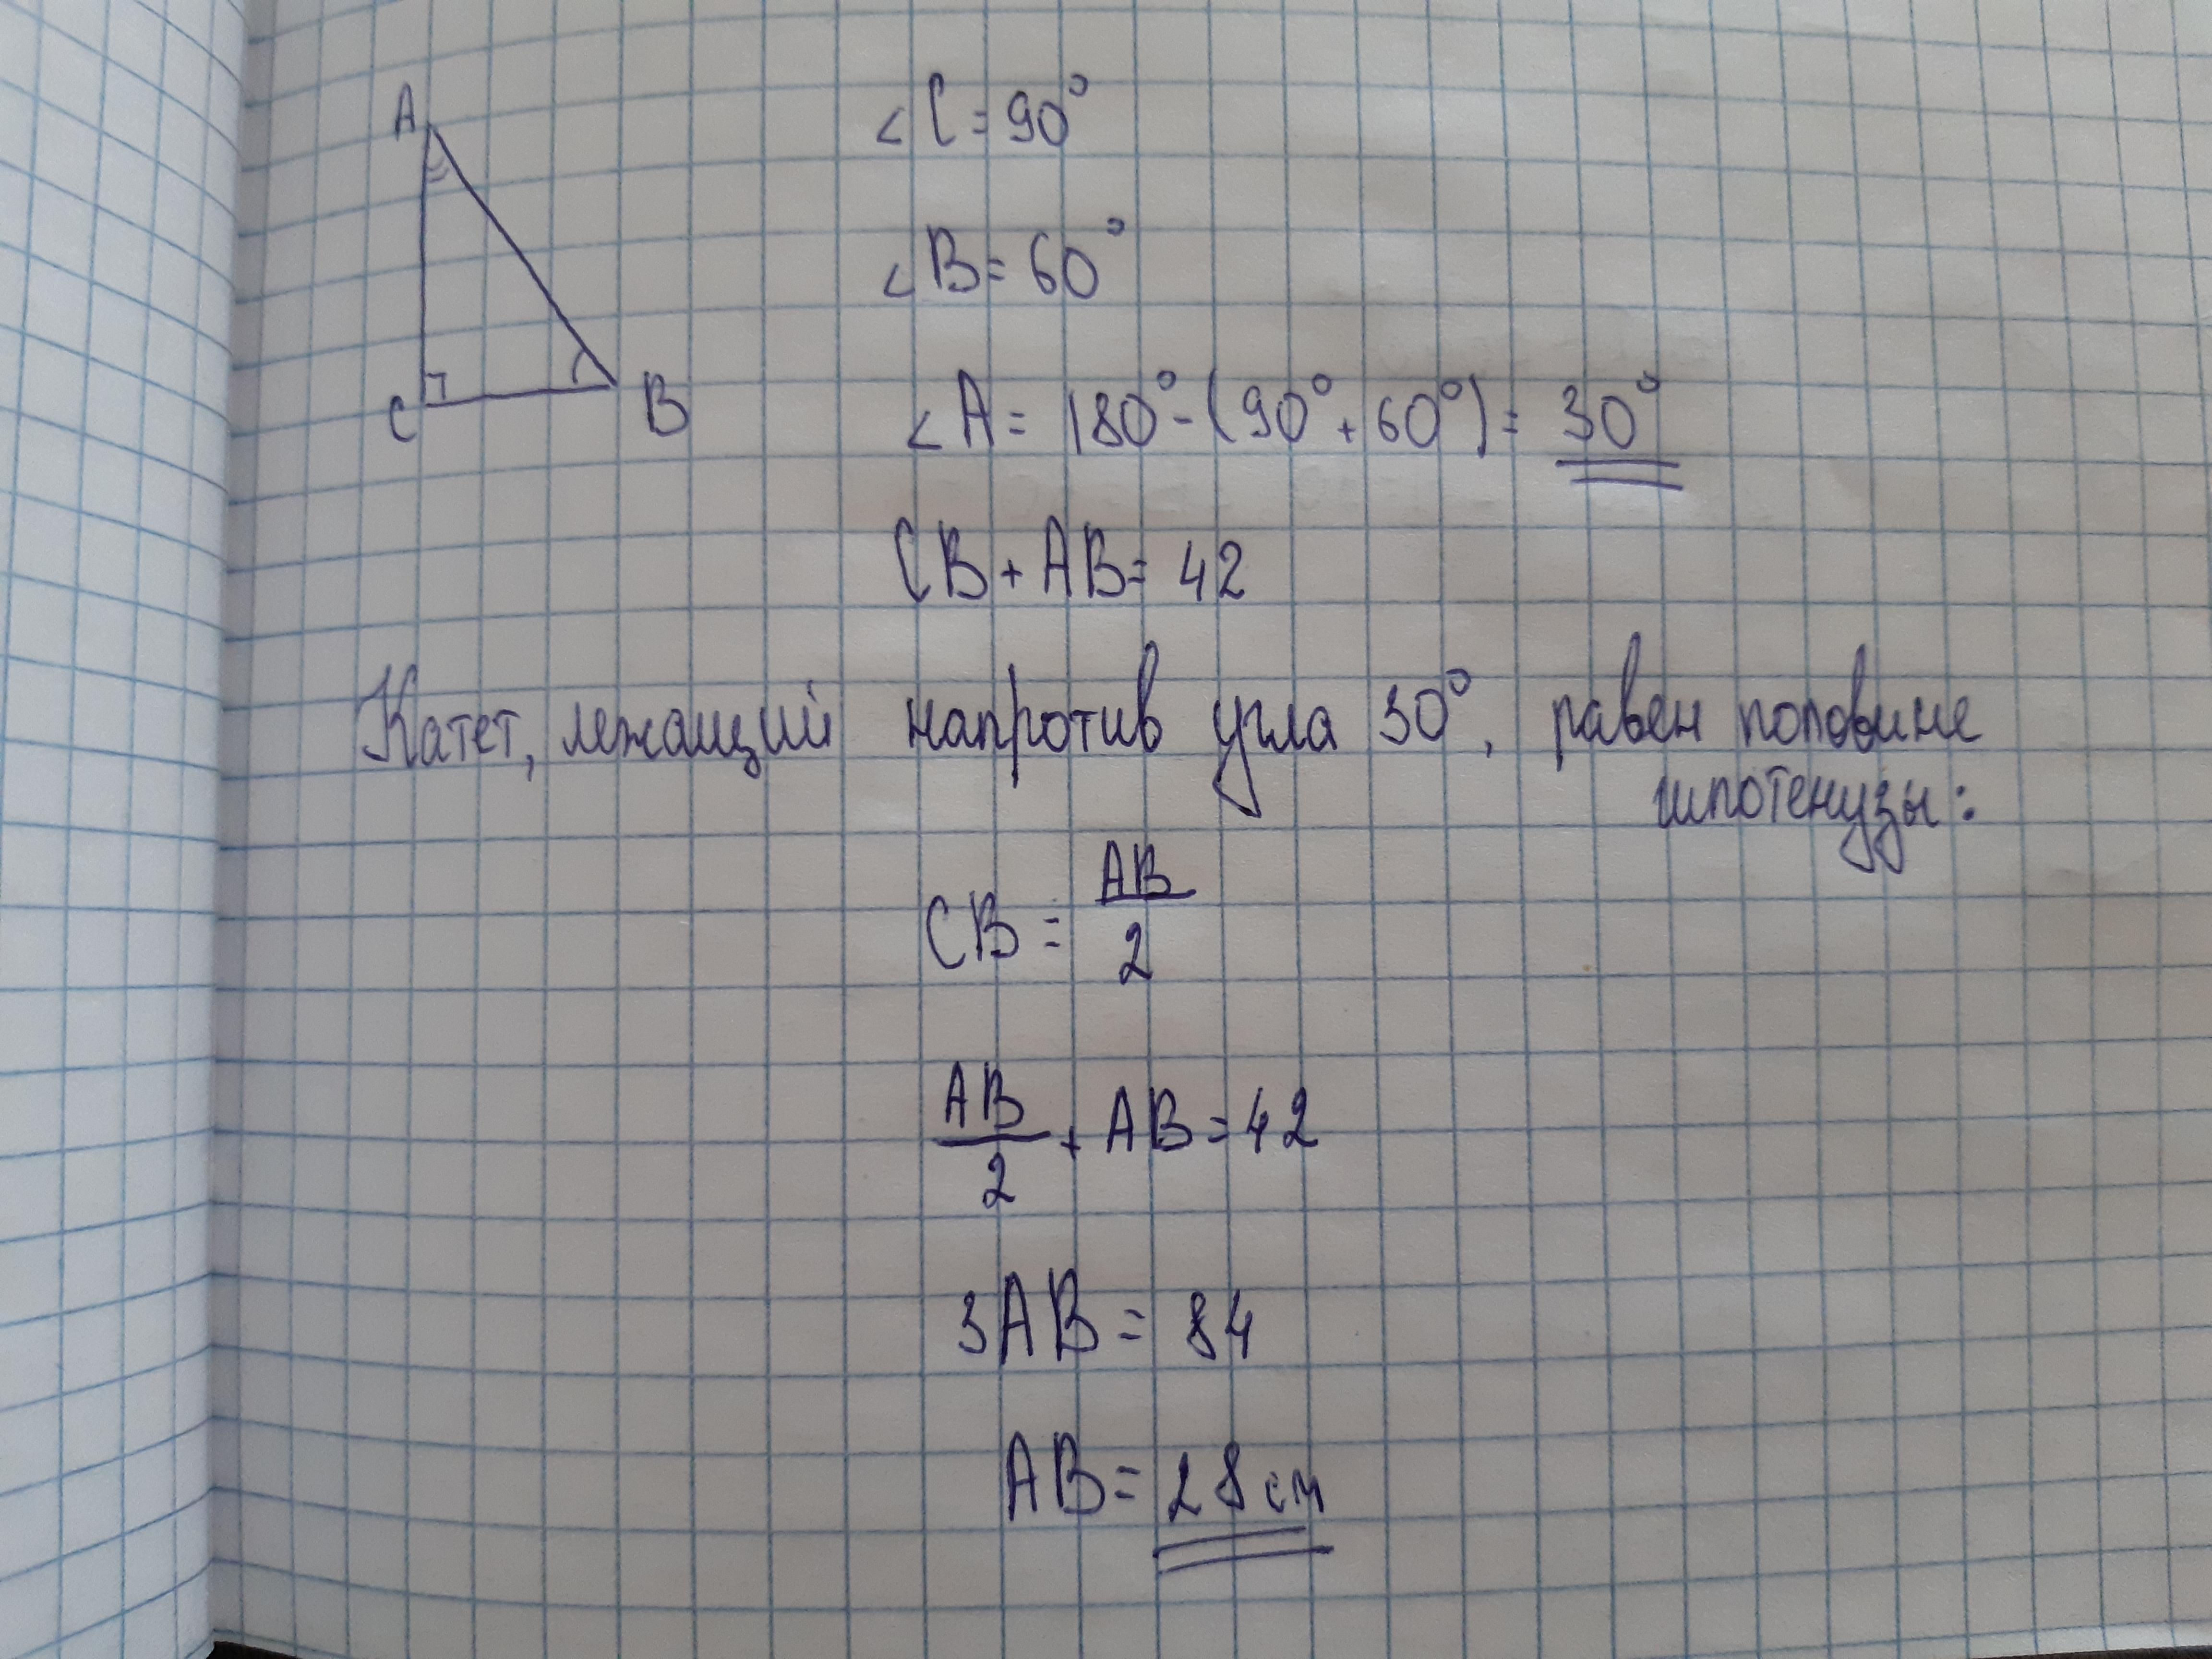 A
C
B
<C=90°
<B=60°
<A=180°-(90°+60°)=30°
CB+AB=42
Катет, лежащий напротив угла 30°, равен половине
гипотенузы:
CB=AB/2
AB/2+AB=42
3AB=84
AB=28см